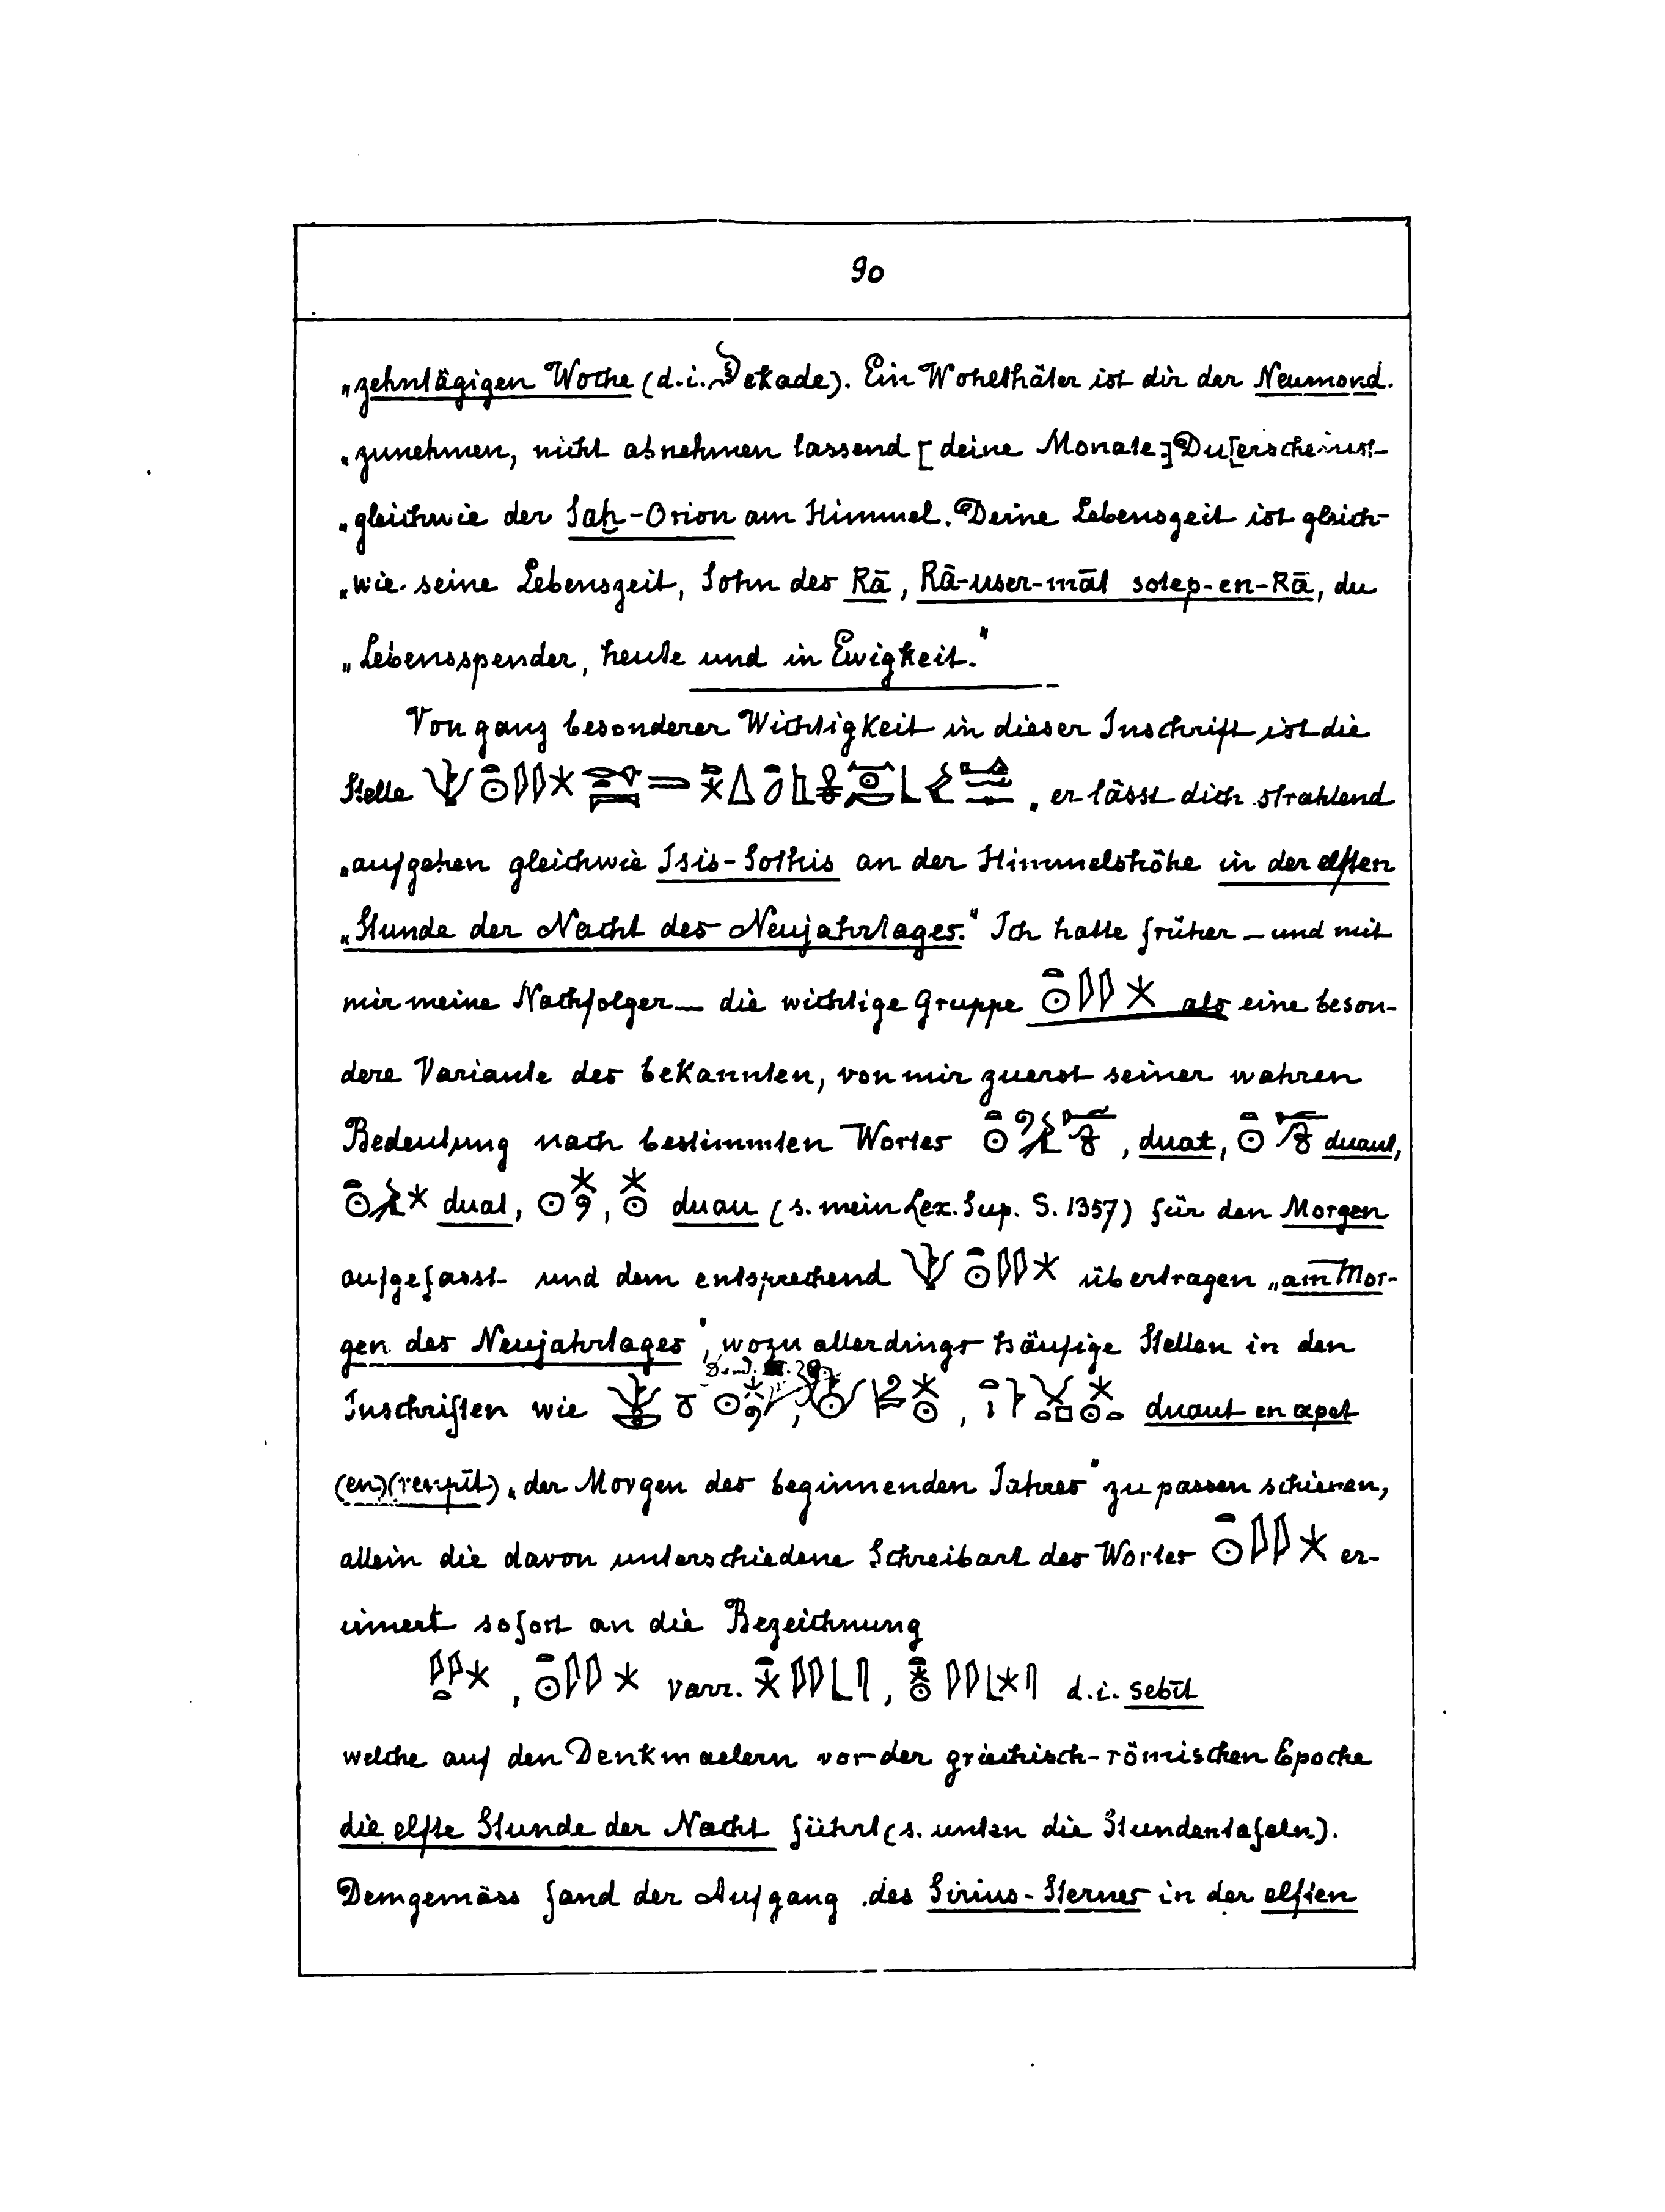 90
„zehntägigen Woche (d.i. Dekade). Ein Wohlthäter ist dir der Neumond.
„zunehmen, nicht abnehmen lassend [deine Monate:] Du [erscheinst]
„gleichwie der Saḥ-Orion am Himmel. Deine Lebenszeit ist gleich-
„wie seine Lebenszeit, Sohn des Rā, Rā-user-māt sotep-en-Rā, du
„Lebensspender, heute und in Ewigkeit."
Von ganz besonderer Wichtigkeit in dieser Inschrift ist die
Stelle „er lässt dich strahlend
„aufgehen gleichwie Isis-Sothis an der Himmelshöhe in der elften
„Stunde der Nacht des Neujahrstages." Ich hatte früher – und mit
mir meine Nachfolger – die wichtige Gruppe als eine beson-
dere Variante des bekannten, von mir zuerst seiner wahren
Bedeutung nach bestimmten Wortes , duat, duaut,
duat, , duau (s. mein Lex. Sup. S. 1357) für den Morgen
aufgefasst und dem entsprechend übertragen „am Mor-
gen des Neujahrstages", wozu allerdings häufige Stellen in den
Inschriften wie , , duaut en apet
(en) (renpīt) „der Morgen des beginnenden Jahres" zu passen schienen,
allein die davon unterschiedene Schreibart des Wortes er-
innert sofort an die Bezeichnung
, varr. , d.i. sebīt
welche auf den Denkmaelern vor der griechisch-römischen Epoche
die elfte Stunde der Nacht führt (s. unten die Stundentafeln).
Demgemäss fand der Aufgang des Sirius-Sternes in der elften